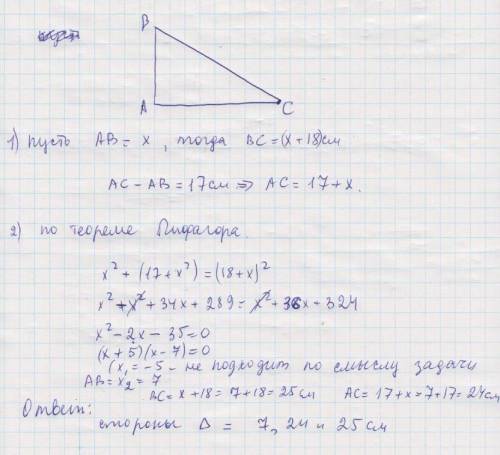 B
A
C
1) пусть AB = x, тогда BC = (x + 18) см
AC - AB = 17 см => AC = 17 + x.
2) по теореме Пифагора.
x² + (17 + x²) = (18 + x)²
x² + x² + 34x + 289 = x² + 36x + 324
x² - 2x - 35 = 0
(x + 5)(x - 7) = 0
(x₁ = -5 - не подходит по смыслу задачи
AB = x₂ = 7
BC = x + 18 = 7 + 18 = 25 см AC = 17 + x = 7 + 17 = 24 см
Ответ:
стороны Δ = 7, 24 и 25 см